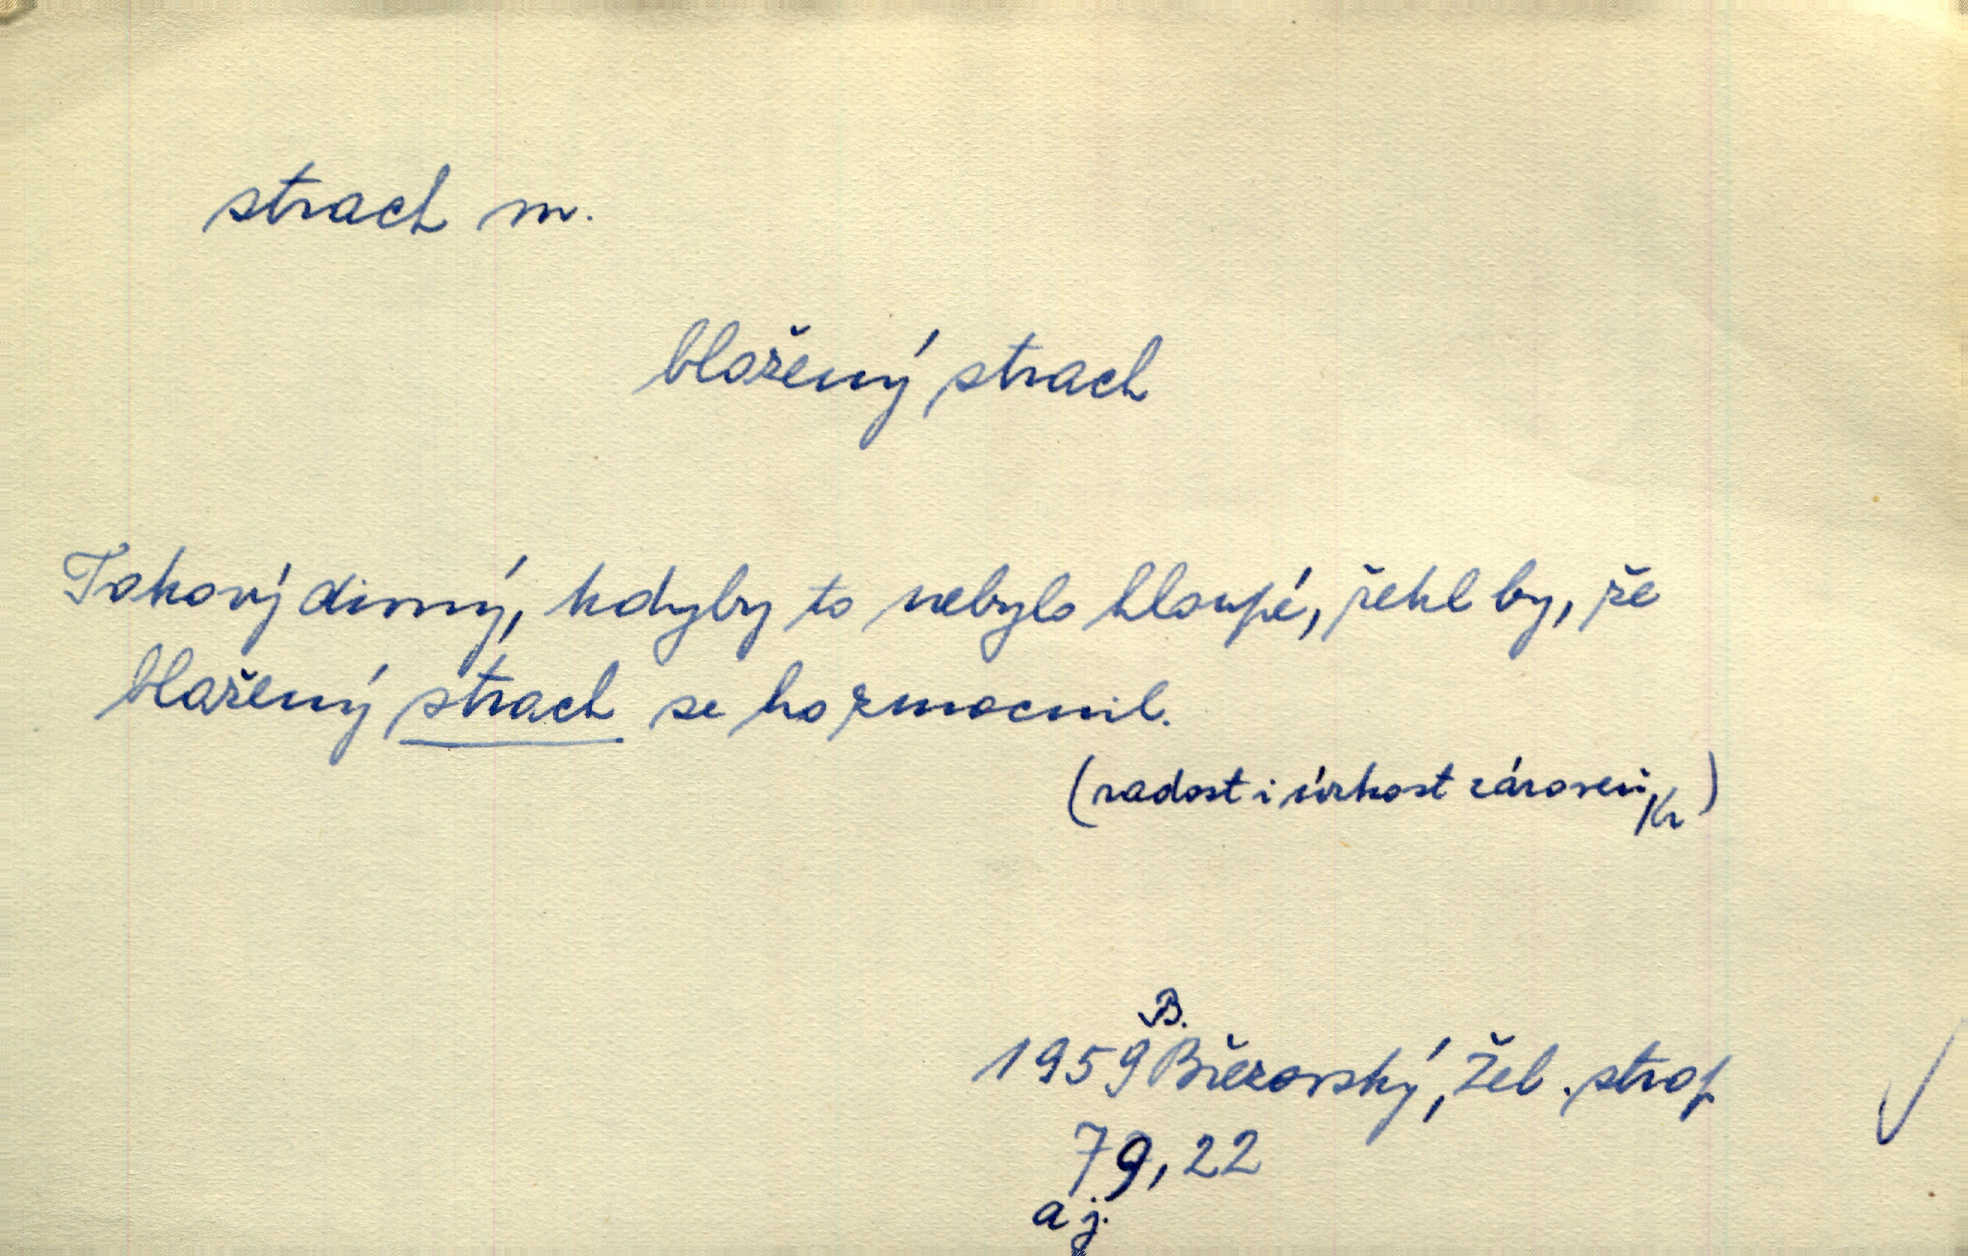 strach m.
blažený strach
Takový divný, kdyby to nebylo hloupé, řekl by, že
blažený strach se ho zmocnil.
(radost i úzkost zároveň, Kr)
B.
1959 Březovský, Žel. strop
79, 22
a j.